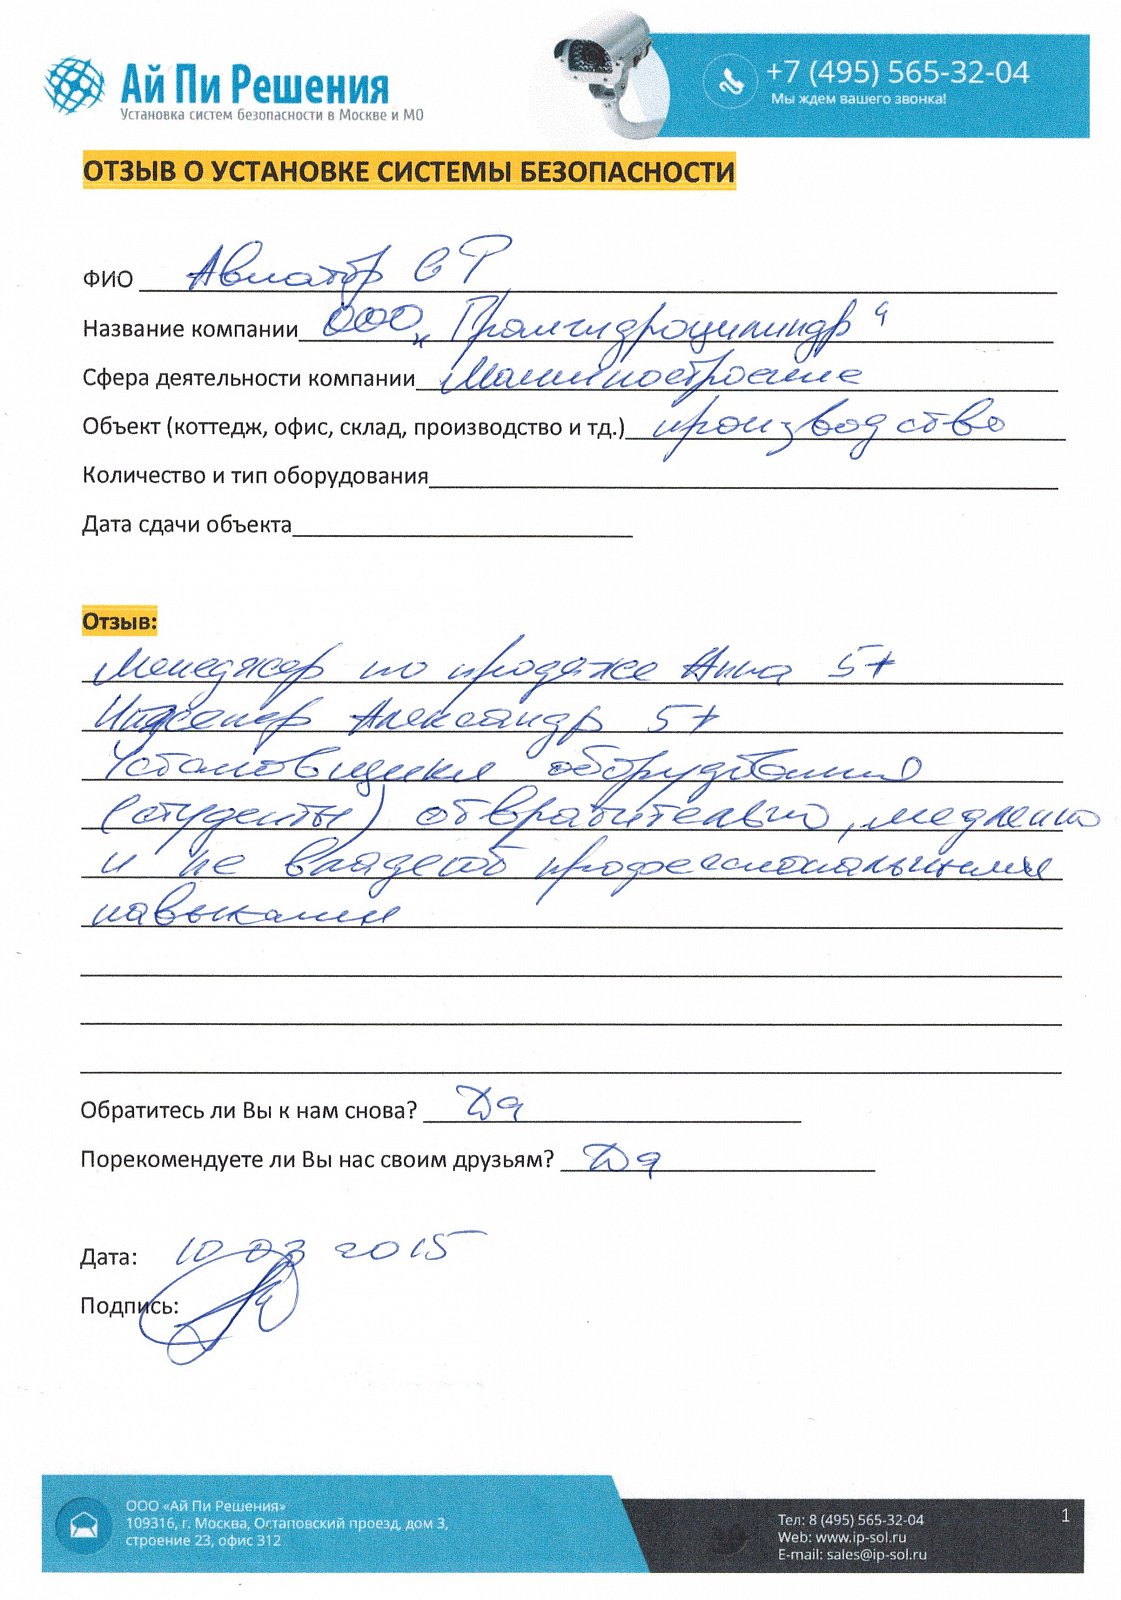 Ай Пи Решения
Установка систем безопасности в Москве и МО
+7 (495) 565-32-04
Мы ждем вашего звонка!
ОТЗЫВ О УСТАНОВКЕ СИСТЕМЫ БЕЗОПАСНОСТИ
ФИО Авиатор С Р
Название компании ООО „Промгидроцилиндр“
Сфера деятельности компании Машиностроение
Объект (коттедж, офис, склад, производство и тд.) производство
Количество и тип оборудования
Дата сдачи объекта
Отзыв:
Менеджер по продаже Анна 5+
Инженер Александр 5+
Установщики оборудования
(студенты) отвратительно, медленно
и не владеют профессиональными
навыками
Обратитесь ли Вы к нам снова? Да
Порекомендуете ли Вы нас своим друзьям? Да
Дата: 10 03 2015
Подпись:
ООО «Ай Пи Решения»
109316, г. Москва, Остаповский проезд, дом 3,
строение 23, офис 312
Тел: 8 (495) 565-32-04
Web: www.ip-sol.ru
E-mail: sales@ip-sol.ru
1